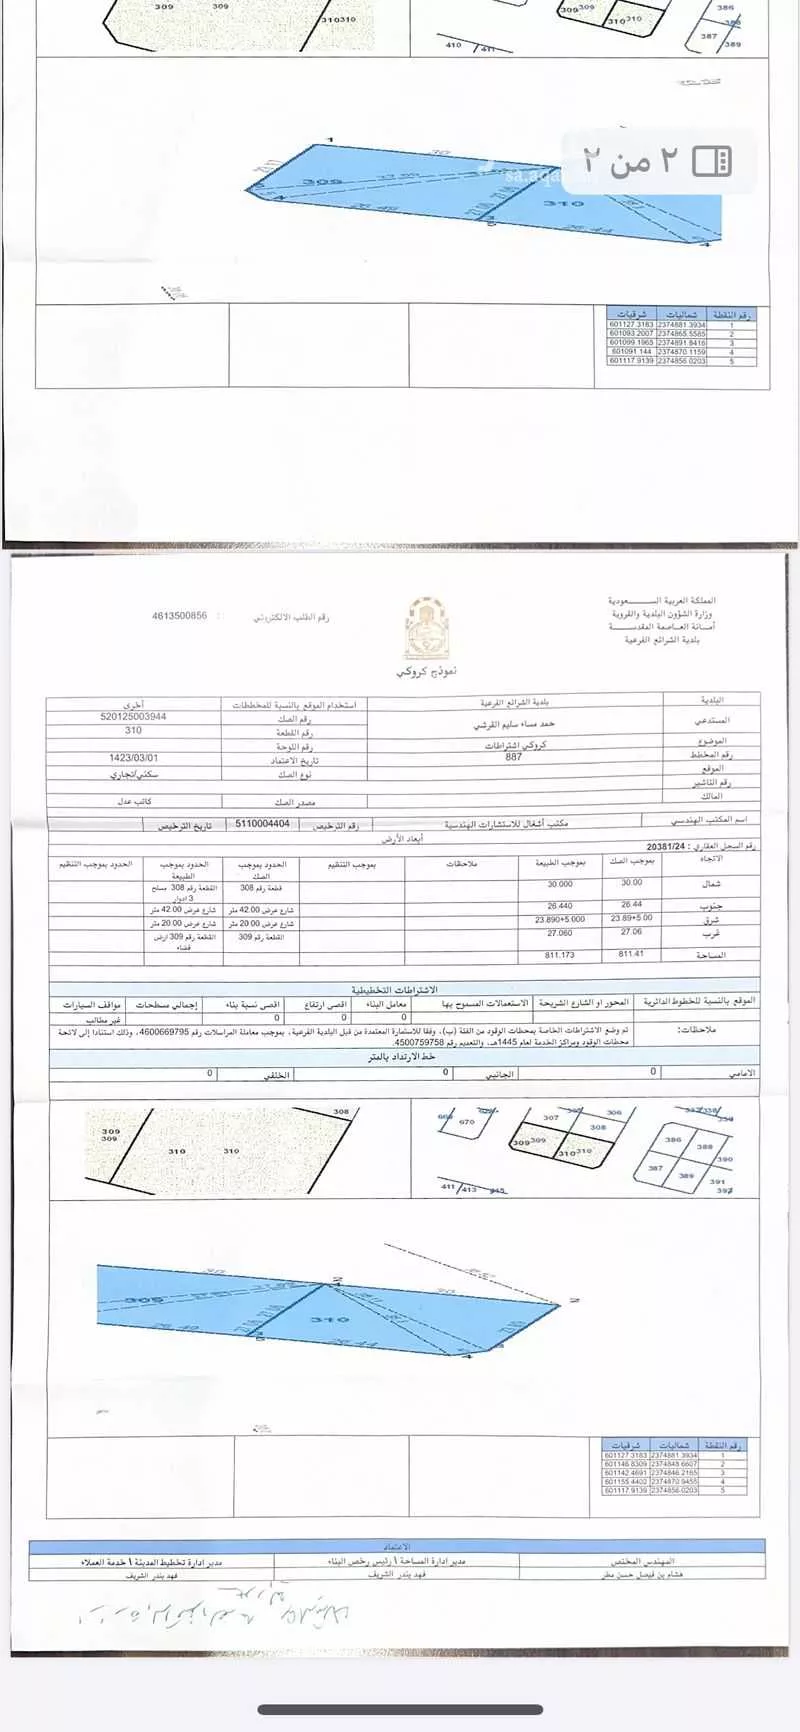 309 309
310310
309309
310310
386
388
387
389
410
411
٢ من ٢
sa.aqar
1
30
309
310
26.44
4
رقم النقطة شماليات شرقيات
1 2374881.3934 601127.3183
2 2374865.5585 601093.2007
3 2374891.8416 601099.1965
4 2374870.1159 601091.144
5 2374856.0203 601117.9139
المملكة العربية الســـعودية
وزارة الشؤون البلدية والقروية
أمــانة العــاصمة المقدســـة
بلدية الشرائع الفرعية
رقم الطلب الالكتروني : 4613500856
نموذج كروكي
البلدية بلدية الشرائع الفرعية استخدام الموقع بالنسبة للمخططات أخرى
المستدعي حمد مساء سليم القرشي رقم الصك 520125003944
رقم القطعة 310
الموضوع كروكي اشتراطات رقم اللوحة
رقم المخطط 887 تاريخ الاعتماد 1423/03/01
الموقع نوع الصك سكني/تجاري
رقم التاشير
المالك مصدر الصك كاتب عدل
اسم المكتب الهندسي مكتب أشغال للاستشارات الهندسية رقم الترخيص 5110004404 تاريخ الترخيص
أبعاد الأرض
رقم السجل العقاري : 20381/24
الاتجاه بموجب الصك بموجب الطبيعة ملاحظات بموجب التنظيم الحدود بموجب الصك الحدود بموجب الطبيعة الحدود بموجب التنظيم
شمال 30.00 30.000 قطعة رقم 308 القطعة رقم 308 مسلح 3 ادوار
جنوب 26.44 26.440 شارع عرض 42.00 متر شارع عرض 42.00 متر
شرق 23.89+5.00 23.890+5.000 شارع عرض 20.00 متر شارع عرض 20.00 متر
غرب 27.06 27.060 القطعة رقم 309 القطعة رقم 309 ارض فضاء
المساحة 811.41 811.173
الاشتراطات التخطيطية
الموقع بالنسبة للخطوط الدائرية المحور او الشارع الشريحة الاستعمالات المسموح بها معامل البناء اقصى ارتفاع اقصى نسبة بناء إجمالي مسطحات مواقف السيارات
0 0 0 0 غير مطالب
ملاحظات: تم وضع الاشتراطات الخاصة بمحطات الوقود من الفئة (ب)، وفقا للاستمارة المعتمدة من قبل البلدية الفرعية، بموجب معاملة المراسلات رقم 4600669795، وذلك استنادا إلى لائحة
محطات الوقود ومراكز الخدمة لعام 1445هـ، والتعميم رقم 4500759758.
خط الارتداد بالمتر
الامامي 0 الجانبي 0 الخلفي 0
308
309
309
310 310
670
307 306
308
309309
310310
411 413
386 388
387 389
390
391
30
2
309
310
26.44
4
2
رقم النقطة شماليات شرقيات
1 2374881.3934 601127.3183
2 2374848.6607 601146.8309
3 2374846.2165 601142.4691
4 2374870.9455 601155.4402
5 2374856.0203 601117.9139
الاعتماد
المهندس المختص مدير ادارة المساحة \ رئيس رخص البناء مدير ادارة تخطيط المدينة \ خدمة العملاء
هشام بن فيصل حسن مطر فهد بندر الشريف فهد بندر الشريف